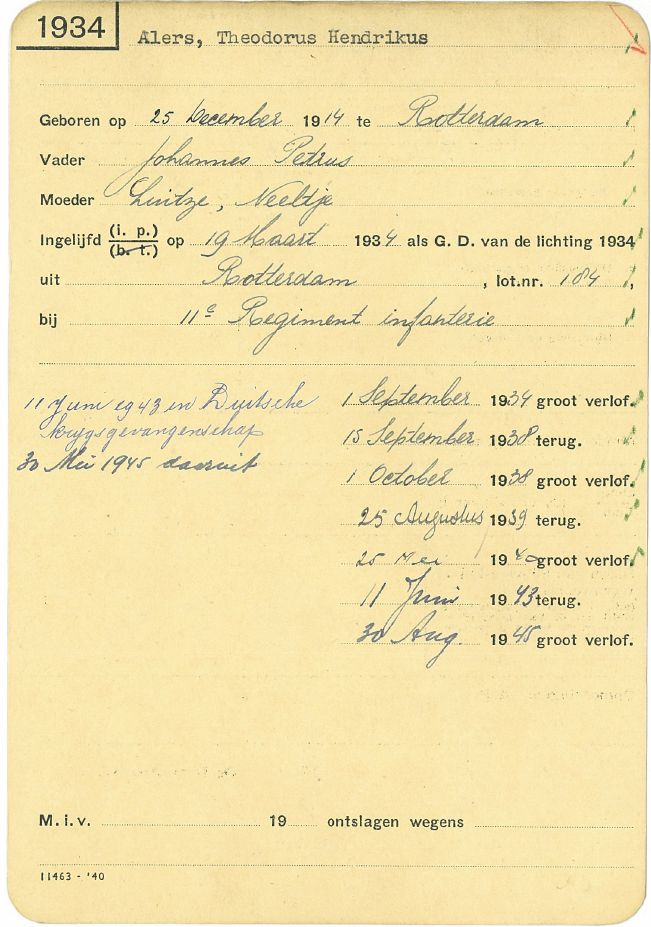 1934
Alers, Theodorus Hendrikus
Geboren op 25 December 1914 te Rotterdam
Vader Johannes Petrus
Moeder Luitze, Neeltje
Ingelijfd (i. p.) (b. t.) op 19 Maart 1934 als G. D. van de lichting 1934
uit Rotterdam, lot.nr. 184,
bij 11e Regiment infanterie
11 Juni 1943 in Duitsche
krijgsgevangenschap
30 Mei 1945 daaruit
1 September 1934 groot verlof.
15 September 1938 terug.
1 October 1938 groot verlof.
25 Augustus 1939 terug.
25 Mei 1940 groot verlof.
11 Juni 1943 terug.
30 Aug. 1945 groot verlof.
M. i. v. 19 ontslagen wegens
11463 - '40